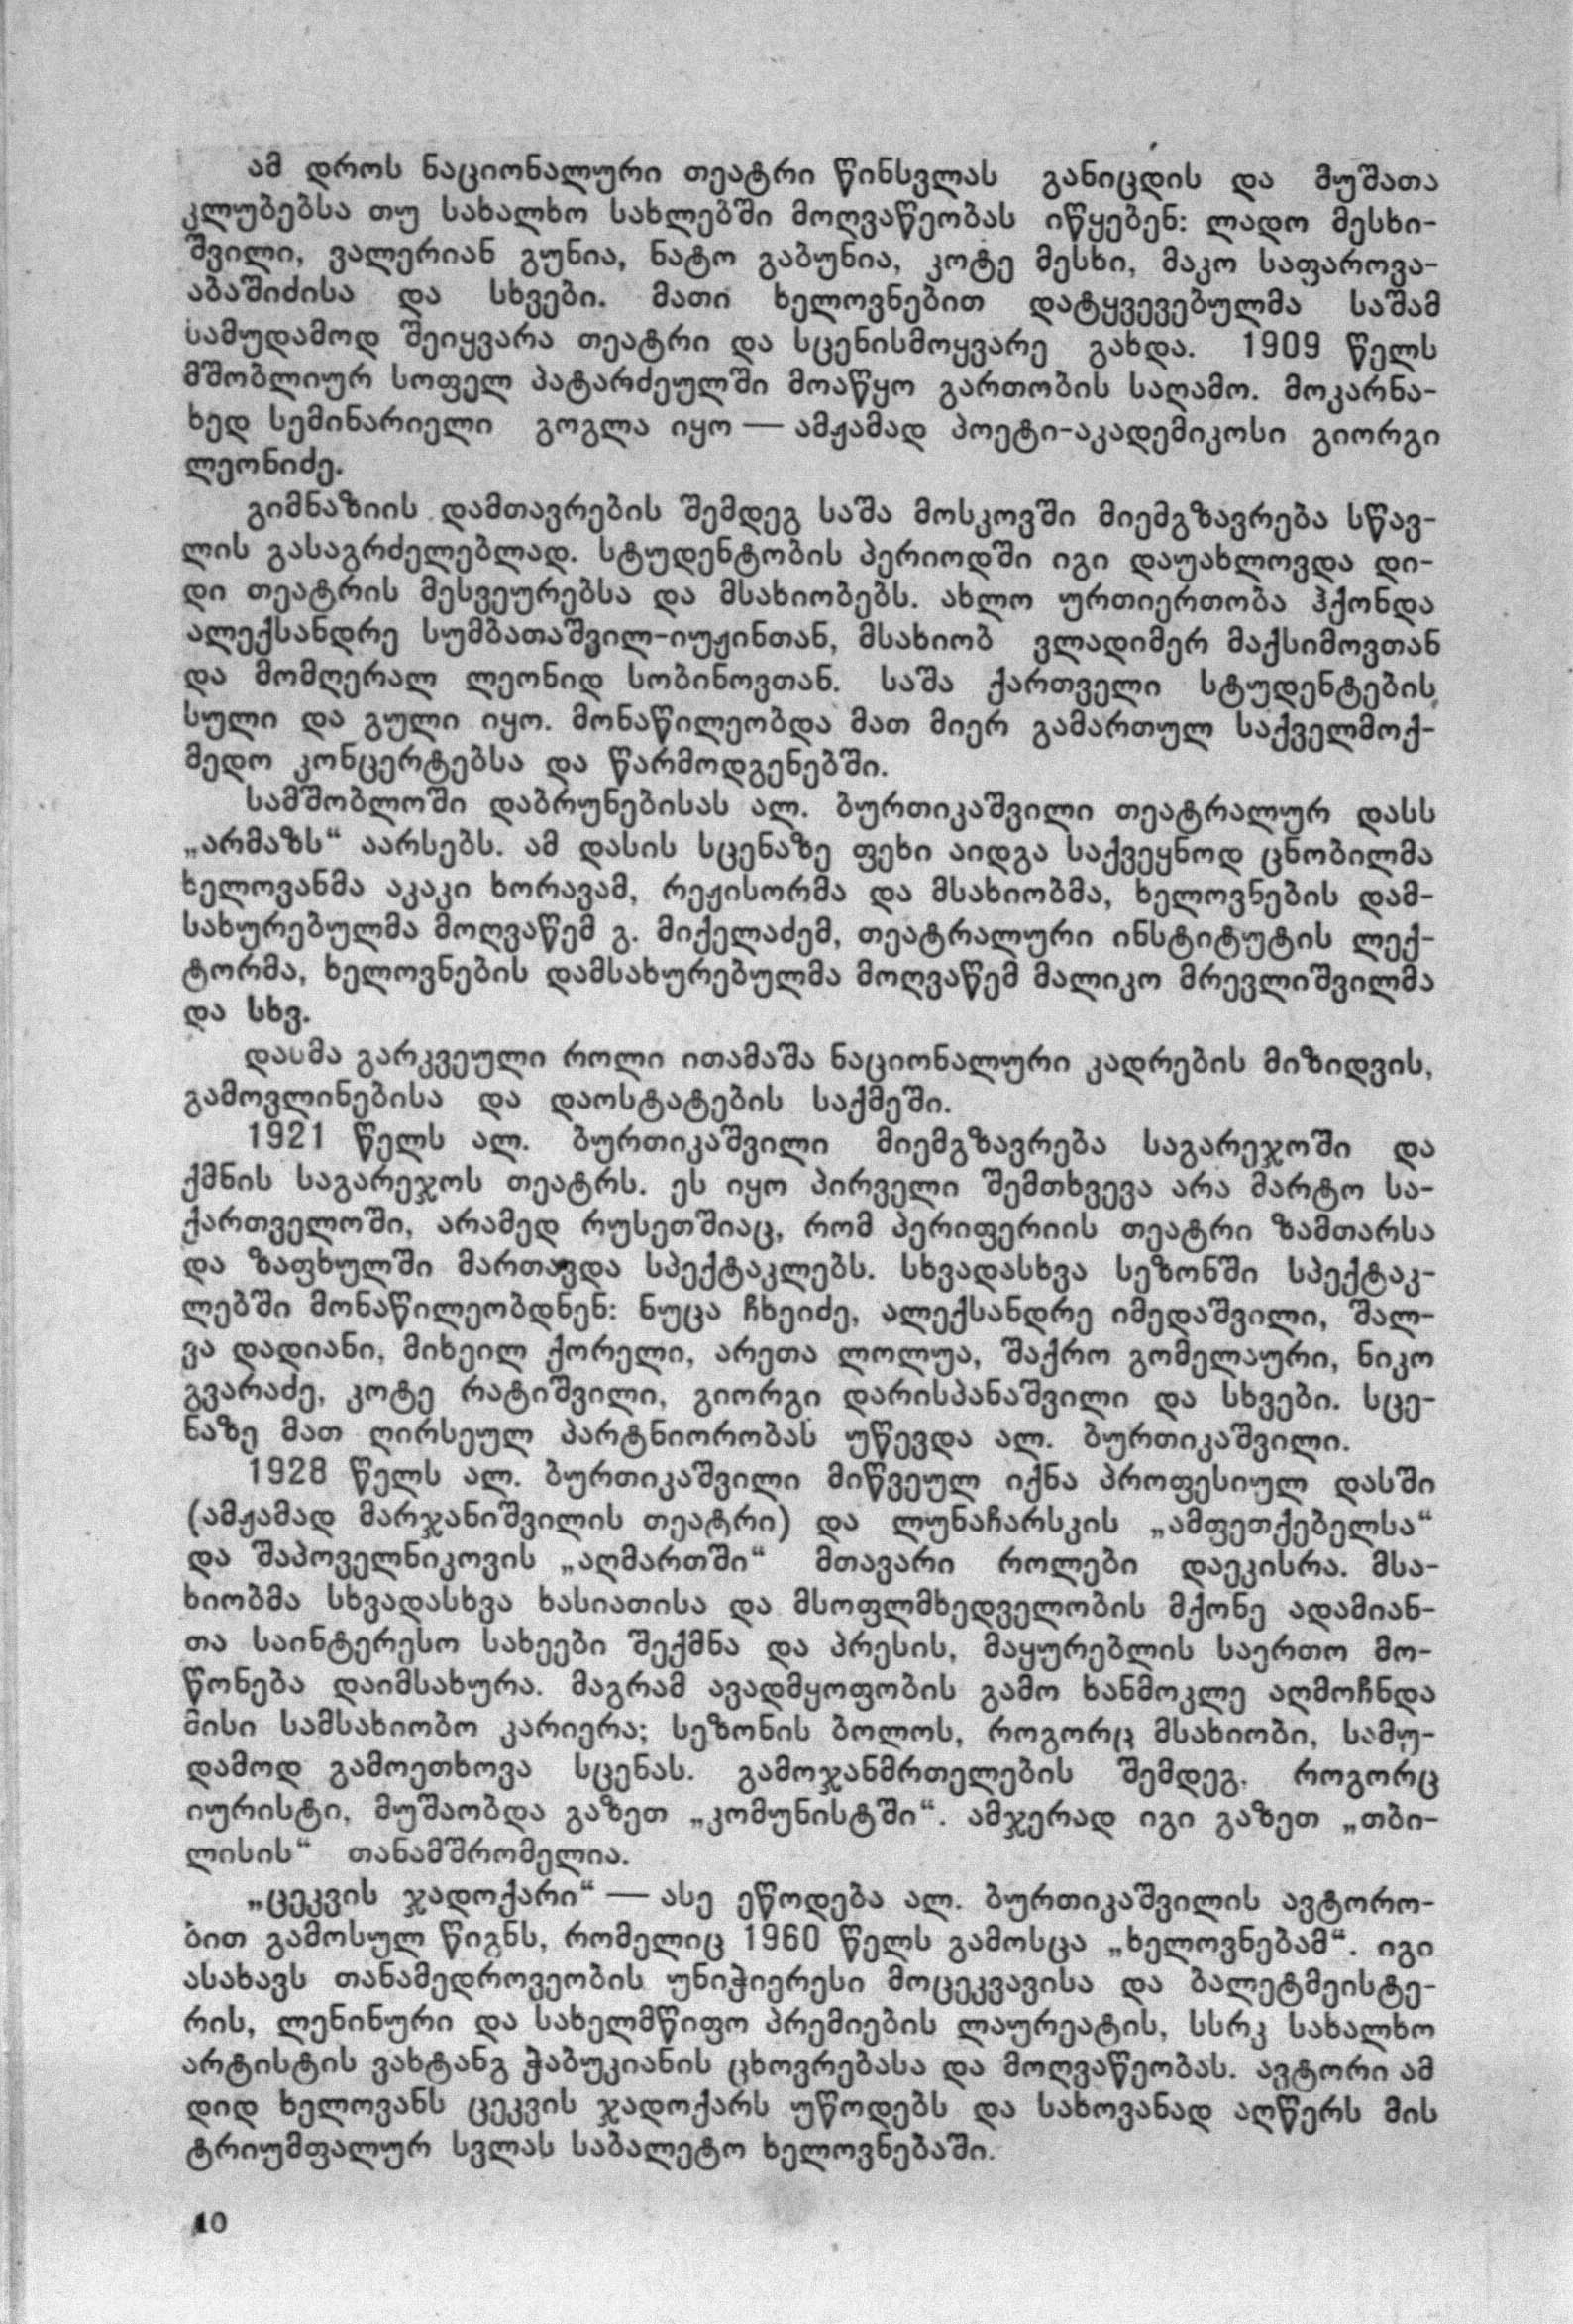 ამ დროს ნაციონალური თეატრი წინსვლას განიცდის და მუშათა
კლუბებსა თუ სახალხო სახლებში მოღვაწეობას იწყებენ: ლადო მესხი-
შვილი, ვალერიან გუნია, ნატო გაბუნია, კოტე მესხი, მაკო საფაროვა-
აბაშიძისა და სხვები. მათი ხელოვნებით დატყვევებულმა საშამ
სამუდამოდ შეიყვარა თეატრი და სცენისმოყვარე გახდა. 1909 წელს
მშობლიურ სოფელ პატარძეულში მოაწყო გართობის საღამო. მოკარნა-
ხედ სემინარიელი გოგლა იყო — ამჟამად პოეტი-აკადემიკოსი გიორგი
ლეონიძე.
გიმნაზიის დამთავრების შემდეგ საშა მოსკოვში მიემგზავრება სწავ-
ლის გასაგრძელებლად. სტუდენტობის პერიოდში იგი დაუახლოვდა დი-
დი თეატრის მესვეურებსა და მსახიობებს. ახლო ურთიერთობა ჰქონდა
ალექსანდრე სუმბათაშვილ-იუჟინთან, მსახიობ ვლადიმერ მაქსიმოვთან
და მომღერალ ლეონიდ სობინოვთან. საშა ქართველი სტუდენტების
სული და გული იყო. მონაწილეობდა მათ მიერ გამართულ საქველმოქ-
მედო კონცერტებსა და წარმოდგენებში.
სამშობლოში დაბრუნებისას ალ. ბურთიკაშვილი თეატრალურ დასს
„არმაზს“ აარსებს. ამ დასის სცენაზე ფეხი აიდგა საქვეყნოდ ცნობილმა
ხელოვანმა აკაკი ხორავამ, რეჟისორმა და მსახიობმა, ხელოვნების დამ-
სახურებულმა მოღვაწემ გ. მიქელაძემ, თეატრალური ინსტიტუტის ლექ-
ტორმა, ხელოვნების დამსახურებულმა მოღვაწემ მალიკო მრევლიშვილმა
და სხვ.
დასმა გარკვეული როლი ითამაშა ნაციონალური კადრების მიზიდვის,
გამოვლინებისა და დაოსტატების საქმეში.
1921 წელს ალ. ბურთიკაშვილი მიემგზავრება საგარეჯოში და
ქმნის საგარეჯოს თეატრს. ეს იყო პირველი შემთხვევა არა მარტო სა-
ქართველოში, არამედ რუსეთშიაც, რომ პერიფერიის თეატრი ზამთარსა
და ზაფხულში მართავდა სპექტაკლებს. სხვადასხვა სეზონში სპექტაკ-
ლებში მონაწილეობდნენ: ნუცა ჩხეიძე, ალექსანდრე იმედაშვილი, შალ-
ვა დადიანი, მიხეილ ქორელი, არეთა ლოლუა, შაქრო გომელაური, ნიკო
გვარაძე, კოტე რატიშვილი, გიორგი დარისპანაშვილი და სხვები. სცე-
ნაზე მათ ღირსეულ პარტნიორობას უწევდა ალ. ბურთიკაშვილი.
1928 წელს ალ. ბურთიკაშვილი მიწვეულ იქნა პროფესიულ დასში
(ამჟამად მარჯანიშვილის თეატრი) და ლუნაჩარსკის „ამფეთქებელსა“
და შაპოველნიკოვის „აღმართში“ მთავარი როლები დაეკისრა. მსა-
ხიობმა სხვადასხვა ხასიათისა და მსოფლმხედველობის მქონე ადამიან-
თა საინტერესო სახეები შექმნა და პრესის, მაყურებლის საერთო მო-
წონება დაიმსახურა. მაგრამ ავადმყოფობის გამო ხანმოკლე აღმოჩნდა
მისი სამსახიობო კარიერა; სეზონის ბოლოს, როგორც მსახიობი, სამუ-
დამოდ გამოეთხოვა სცენას. გამოჯანმრთელების შემდეგ, როგორც
იურისტი, მუშაობდა გაზეთ „კომუნისტში“. ამჯერად იგი გაზეთ „თბი-
ლისის“ თანამშრომელია.
„ცეკვის ჯადოქარი“ — ასე ეწოდება ალ. ბურთიკაშვილის ავტორო-
ბით გამოსულ წიგნს, რომელიც 1960 წელს გამოსცა „ხელოვნებამ“. იგი
ასახავს თანამედროვეობის უნიჭიერესი მოცეკვავისა და ბალეტმეისტე-
რის, ლენინური და სახელმწიფო პრემიების ლაურეატის, სსრკ სახალხო
არტისტის ვახტანგ ჭაბუკიანის ცხოვრებასა და მოღვაწეობას. ავტორი ამ
დიდ ხელოვანს ცეკვის ჯადოქარს უწოდებს და სახოვანად აღწერს მის
ტრიუმფალურ სვლას საბალეტო ხელოვნებაში.
10